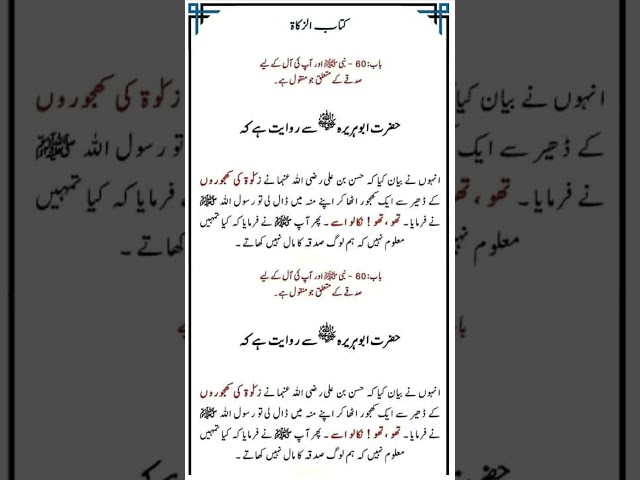 کتاب الزکاة
باب:60 - نبی ﷺ اور آپ کی آل کے لیے
صدقے کے متعلق جو منقول ہے۔
حضرت ابوہریرہ ؓ سے روایت ہے کہ
انہوں نے بیان کیا کہ حسن بن علی رضی اللہ عنہما نے زکوٰة کی کھجوروں
کے ڈھیر سے ایک کھجور اٹھا کر اپنے منہ میں ڈال لی تو رسول اللہ ﷺ
نے فرمایا۔ تھو ، تھو ! نکالو اسے ۔ پھر آپ ﷺ نے فرمایا کہ کیا تمہیں
معلوم نہیں کہ ہم لوگ صدقہ کا مال نہیں کھاتے ۔
باب:60 - نبی ﷺ اور آپ کی آل کے لیے
صدقے کے متعلق جو منقول ہے۔
حضرت ابوہریرہ ؓ سے روایت ہے کہ
انہوں نے بیان کیا کہ حسن بن علی رضی اللہ عنہما نے زکوٰة کی کھجوروں
کے ڈھیر سے ایک کھجور اٹھا کر اپنے منہ میں ڈال لی تو رسول اللہ ﷺ
نے فرمایا۔ تھو ، تھو ! نکالو اسے ۔ پھر آپ ﷺ نے فرمایا کہ کیا تمہیں
معلوم نہیں کہ ہم لوگ صدقہ کا مال نہیں کھاتے ۔